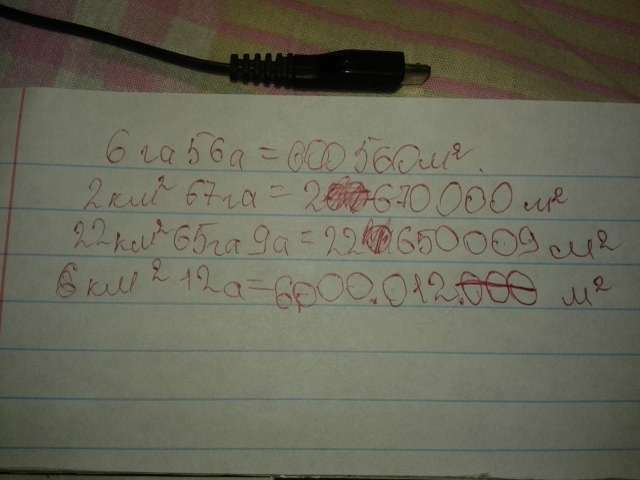 6 га 56 а = 600 560 м².
2 км² 67 га = 2 670 000 м²
22 км² 65 га 9 а = 22 650 009 м²
6 км² 12 а = 6000.012 м²